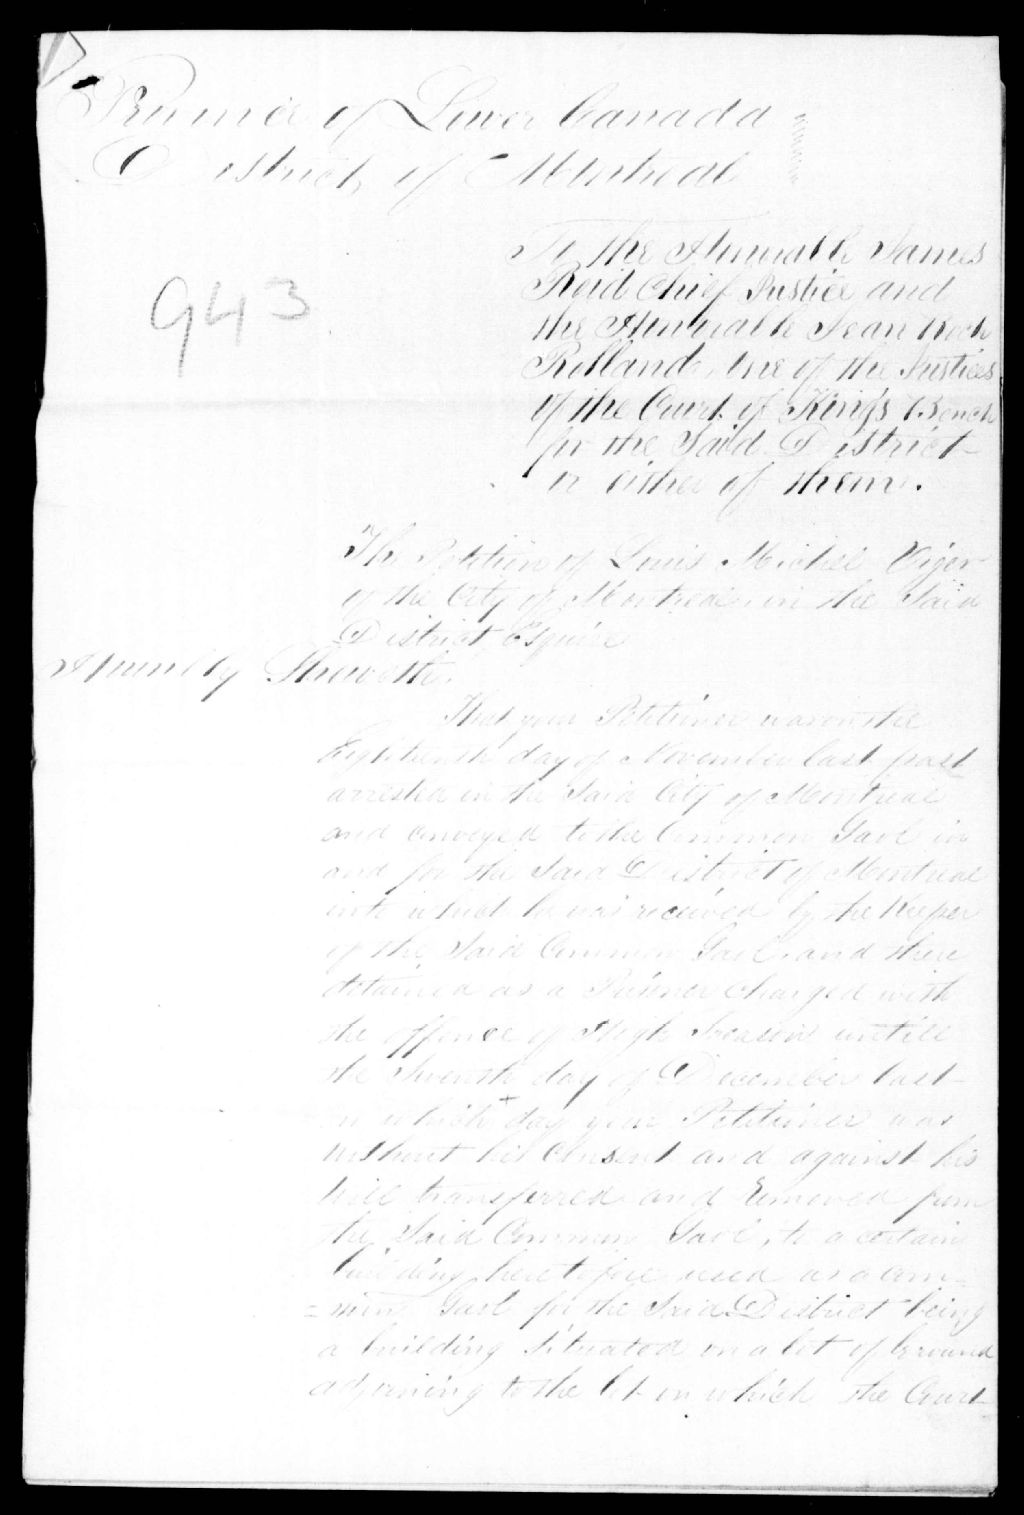 Province of Lower Canada
District of Montreal
943
To the Honorable James
Reid Chief Justice and
the Honorable Jean Roch
Rolland, One of the Justices
of the Court of King's Bench
for the Said District
or either of them.
The Petition of Louis Michel Viger
of the City of Montreal, in the Said
District, Esquire
Humbly Sheweth.
That your Petitioner was on the
Eighteenth day of November last past
arrested in the Said City of Montreal
and conveyed to the Common Gaol in
and for the Said District of Montreal
into which he was received by the Keeper
of the Said Common Gaol, and there
detained as a Prisoner charged with
the offence of High Treason untill
the Seventh day of December last
on which day your Petitioner was
without his Consent and against his
will transferred and removed from
the Said Common Gaol, to a certain
building heretofore used as a com=
=mon Gaol for the Said District being
a building Situated on a lot of Ground
adjoining to the lot on which the Court